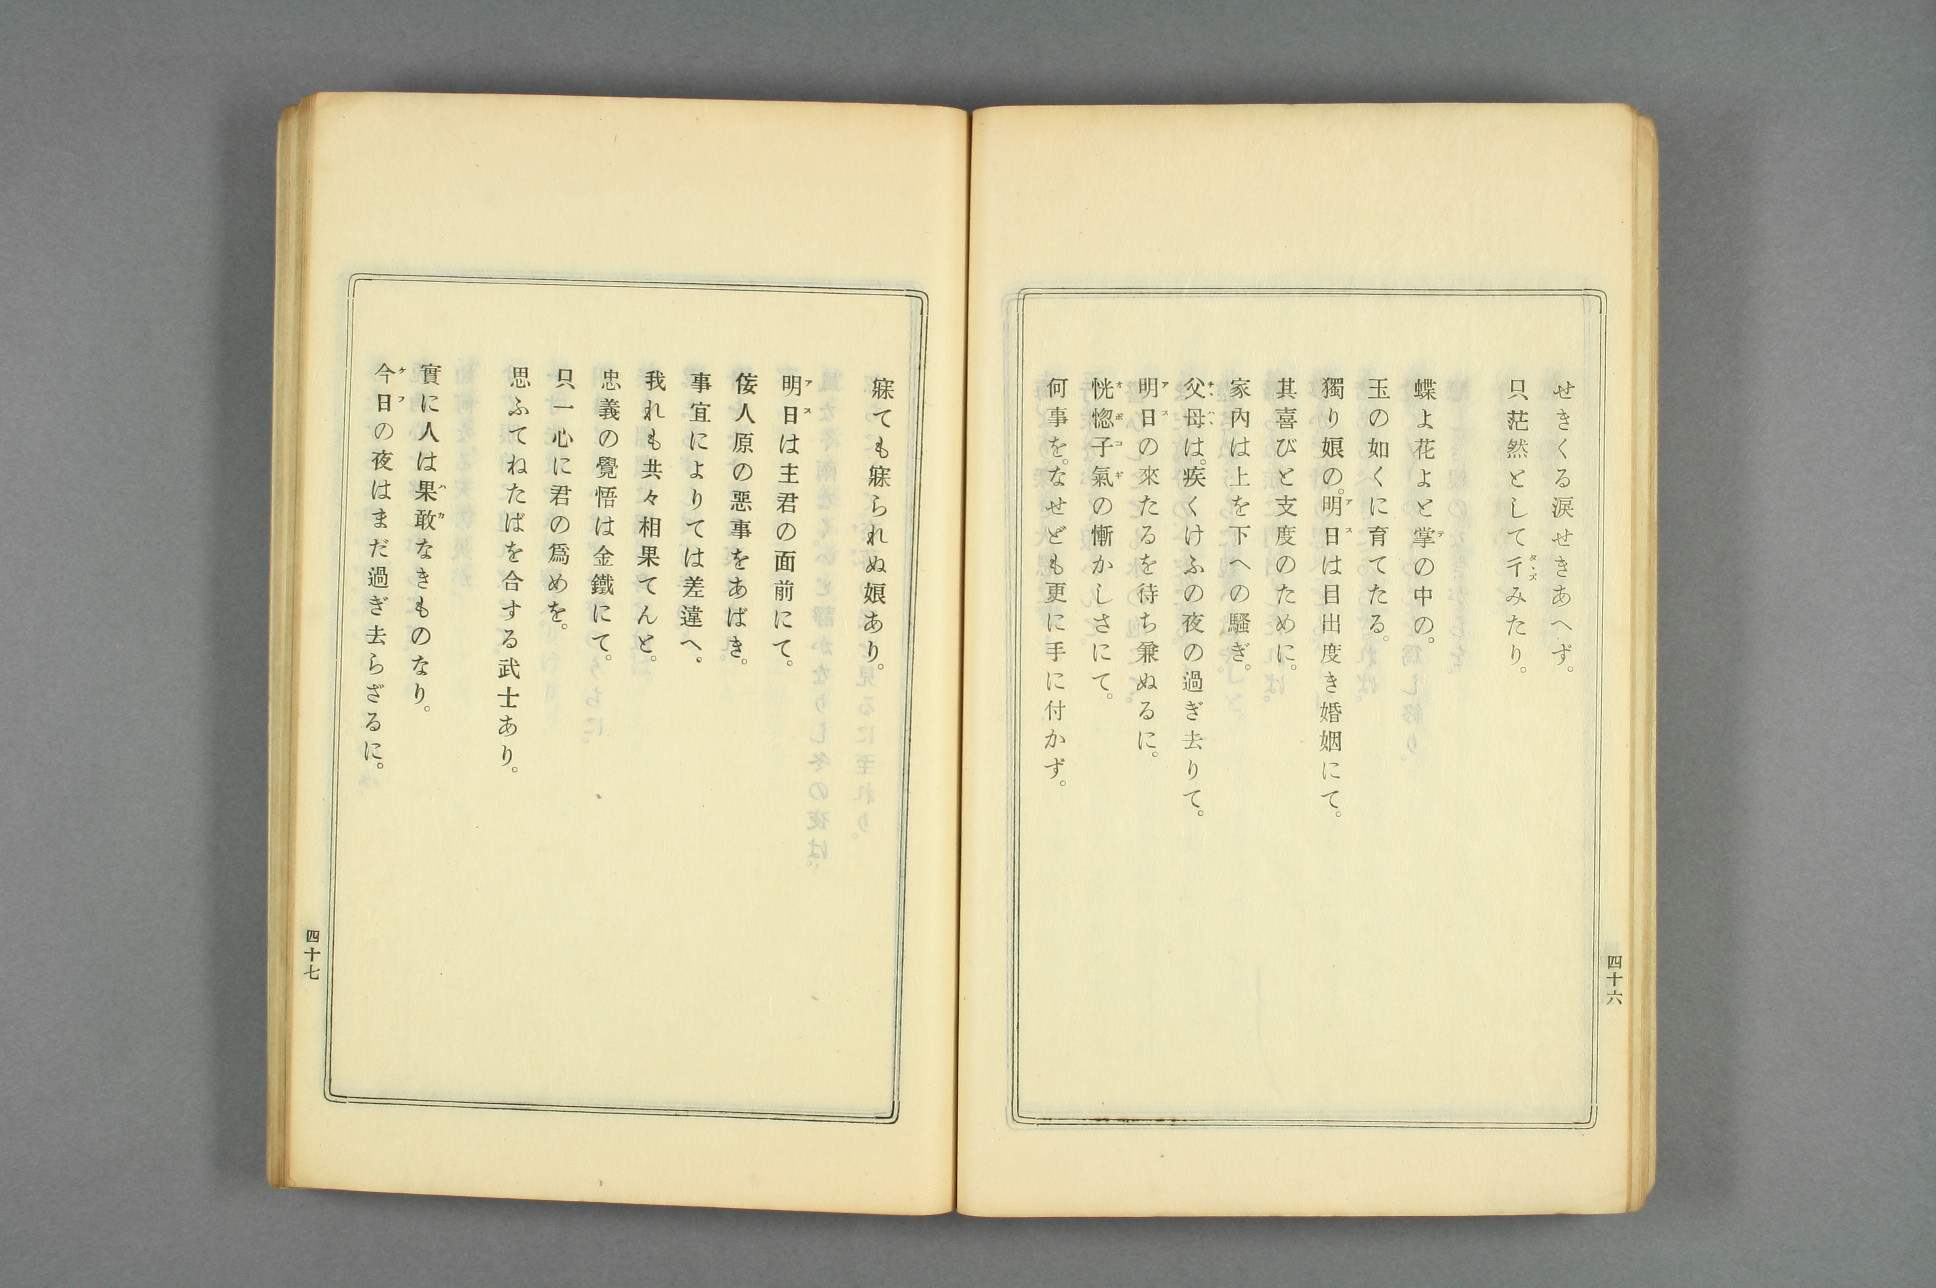 せきくる涙せきあへず。
只茫然として彳みたり。
蝶よ花よと掌の中の。
玉の如くに育てたる。
獨り娘の。明日は目出度き婚姻にて。
其喜びと支度のために。
家內は上を下への騷ぎ。
父母は。疾くけふの夜の過ぎ去りて。
明日の來たるを待ち兼ぬるに。
恍惚子氣の慚かしさにて。
何事を。なせども更に手に付かず。
四十六
寐ても寐られぬ娘あり。
明日は主君の面前にて。
侫人原の惡事をあばき。
事宜によりては差違へ。
我れも共々相果てんと。
忠義の覺悟は金鐵にて。
只一心に君の爲めを。
思ふてねたばを合する武士あり。
實に人は果敢なきものなり。
今日の夜はまだ過ぎ去らざるに。
四十七